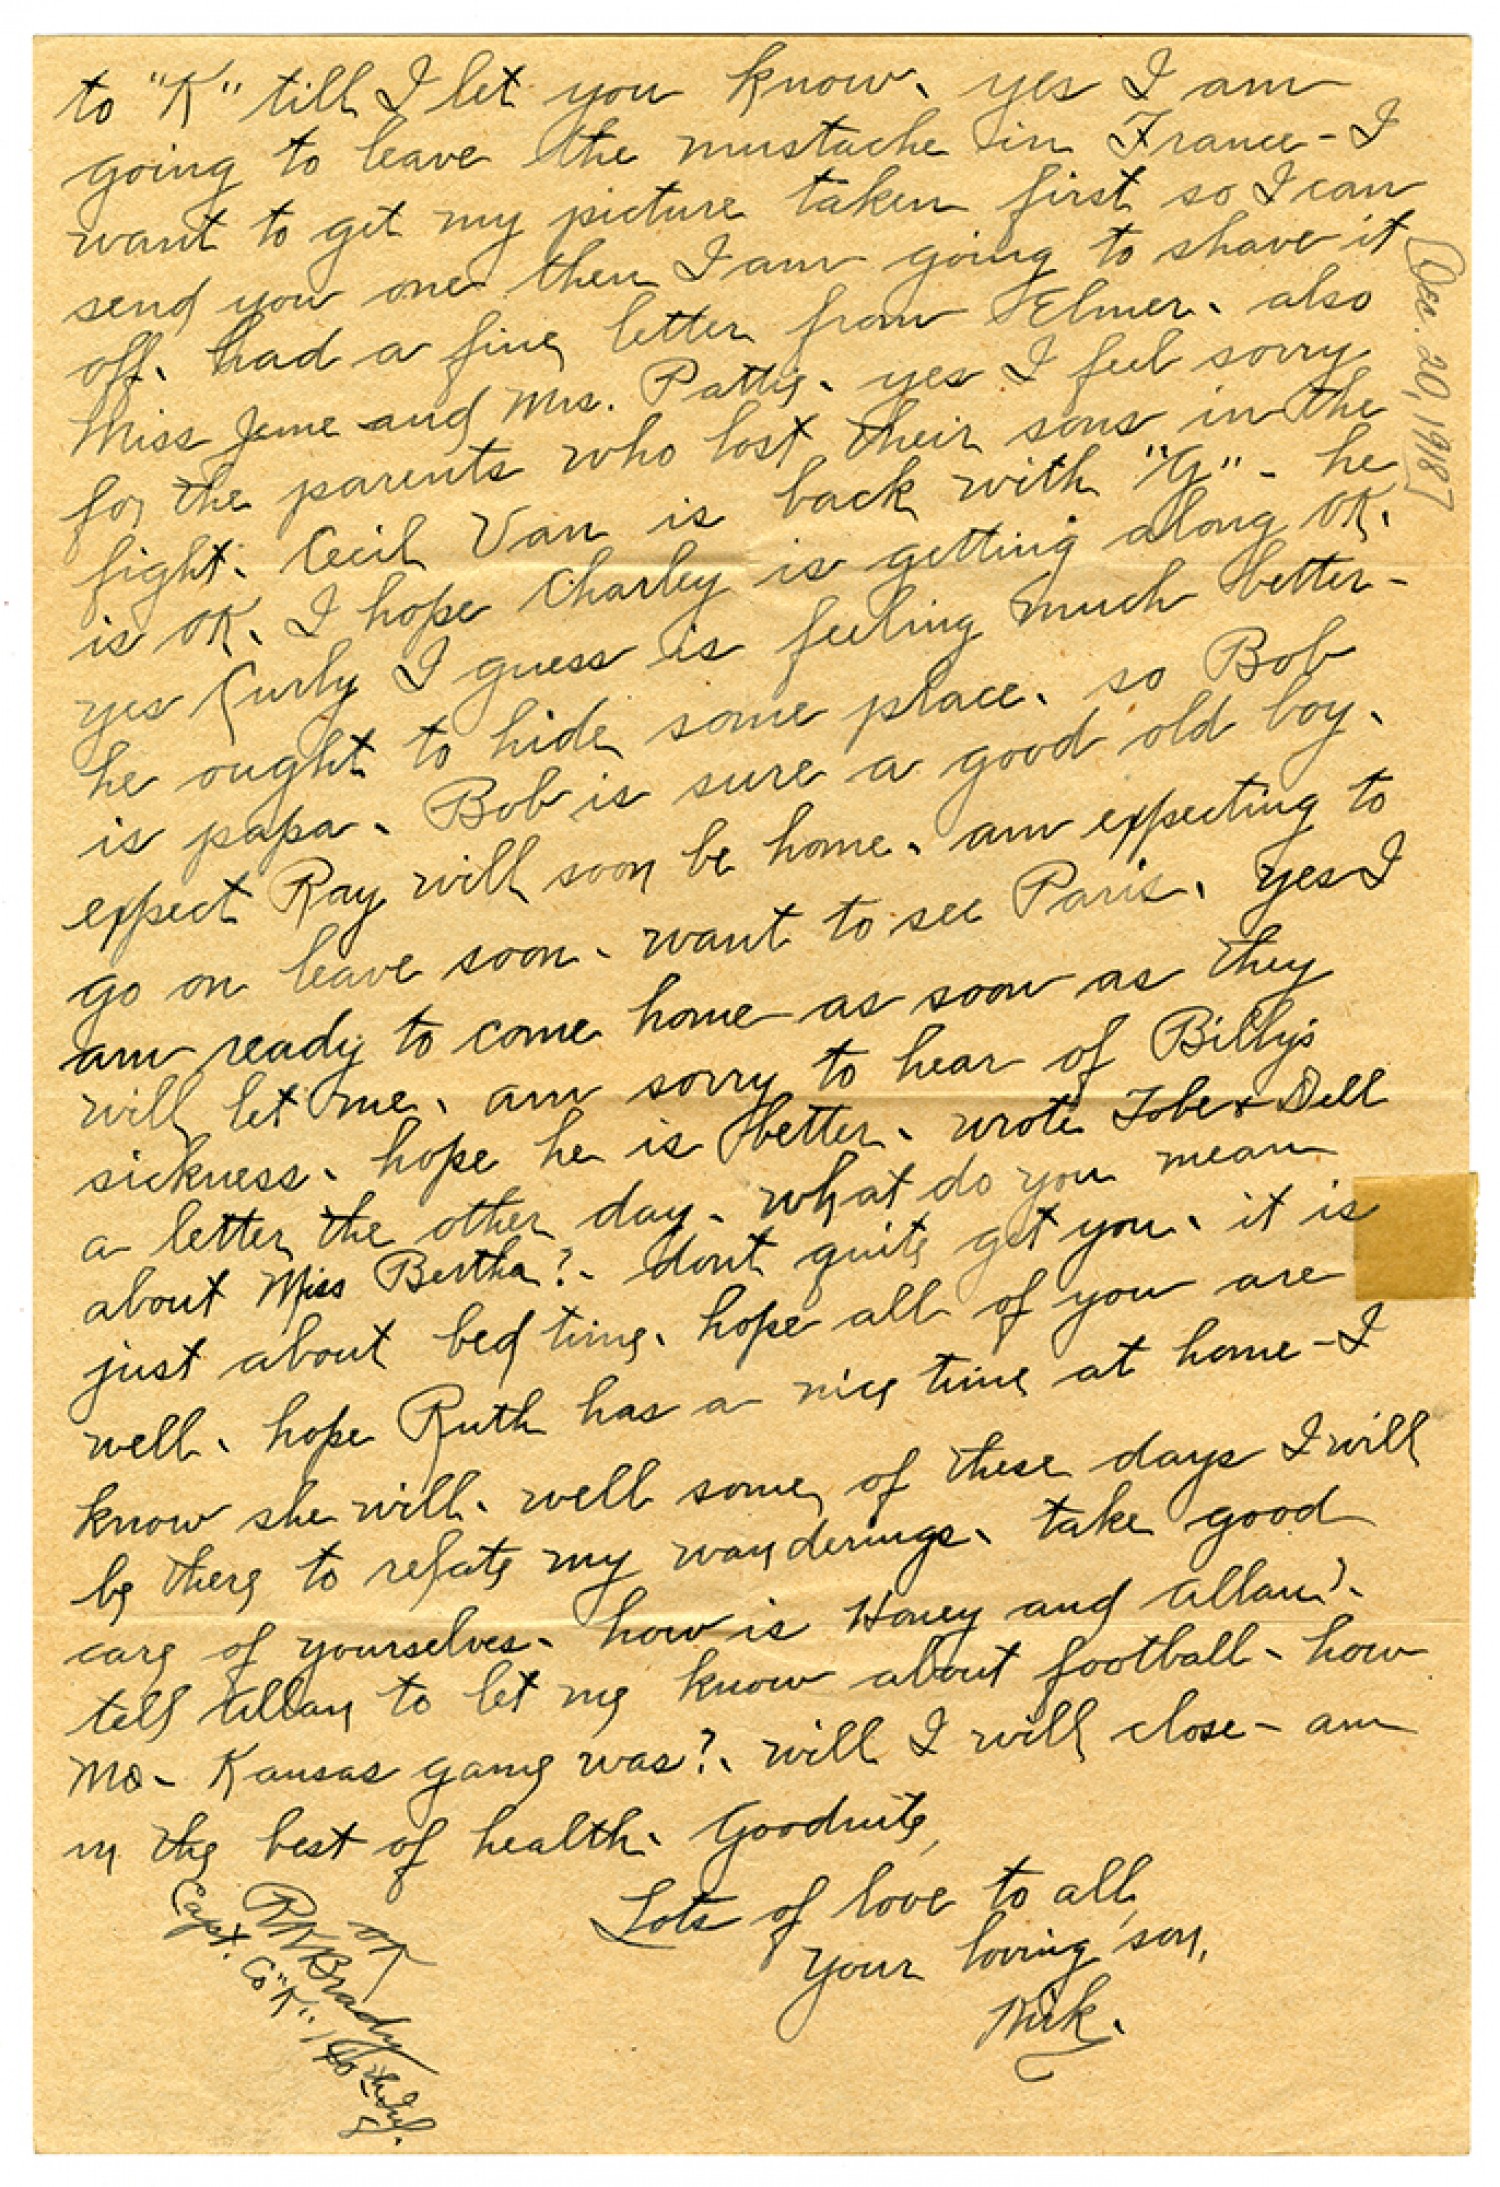 to "K" till I let you know. yes I am
going to leave the mustache in France - I
want to get my picture taken first so I can
send you one then I am going to shave it
off. had a fine letter from Elmer. also
Miss Jene and Mrs. Pattie. yes I feel sorry
for the parents who lost their sons in the
fight. Cecil Van is back with "G" - he
is OK. I hope Charley is getting along OK.
yes Curly I guess is feeling much better -
he ought to hide some place. so Bob
is papa. Bob is sure a good old boy.
expect Ray will soon be home. am expecting to
go on leave soon. want to see Paris. yes I
am ready to come home as soon as they
will let me. am sorry to hear of Billy's
sickness. hope he is better. wrote Tobe & Dell
a letter the other day. what do you mean
about Miss Bertha?. dont quite get you. it is
just about bed time. hope all of you are
well. hope Ruth has a nice time at home - I
know she will. well some of these days I will
be there to relate my wanderings. take good
care of yourselves. how is Honey and Allan?.
tell Allan to let me know about football - how
Mo - Kansas game was?. will I will close - am
in the best of health. Goodnite,
Lots of love to all,
your loving son,
[Dec. 20, 1918?]
OK
RKBrady
Capt. Co "K" 140th Inf.